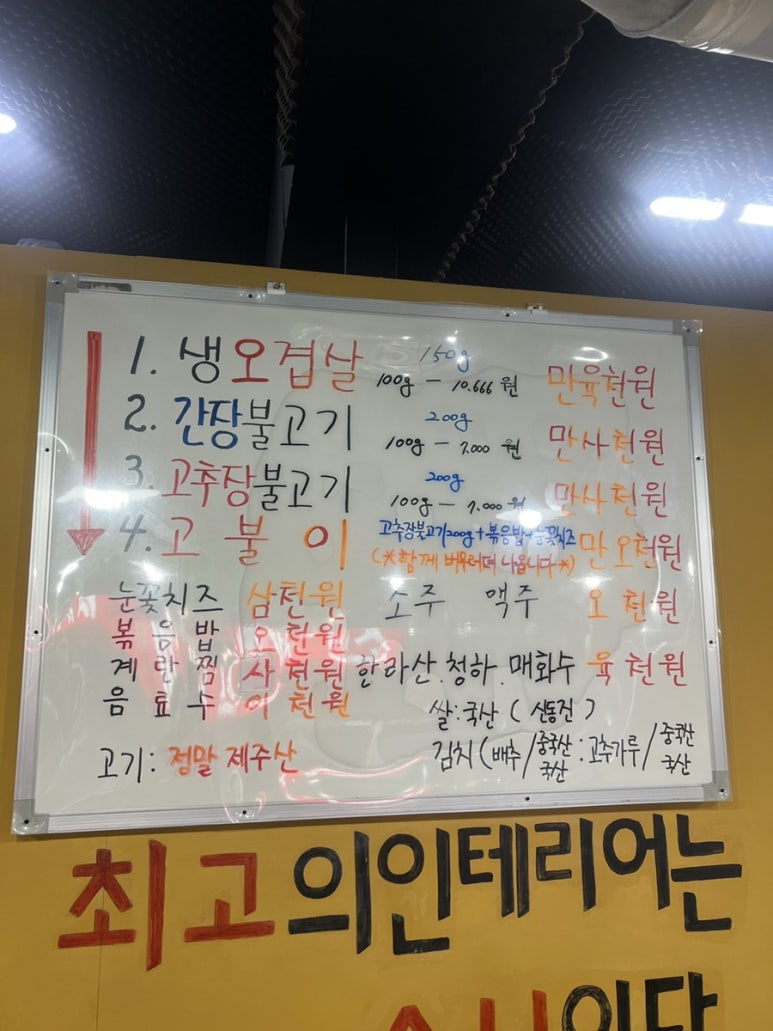 1. 생오겹살 150g 100g - 10.666원 만육천원
2. 간장불고기 200g 100g - 7.000원 만사천원
3. 고추장불고기 200g 100g - 7.000원 만사천원
4. 고불이 고추장불고기200g+볶음밥+눈꽃치즈 만오천원
(*함께 버무려져 나옵니다*)
눈꽃치즈 삼천원 소주 맥주 오천원
볶음밥 오천원
계란찜 사천원 한라산.청하.매화수 육천원
음료수 이천원
쌀:국산 (신동진)
고기: 정말 제주산 김치(배추/중국산 국산:고추가루/중국산 국산
최고의인테리어는